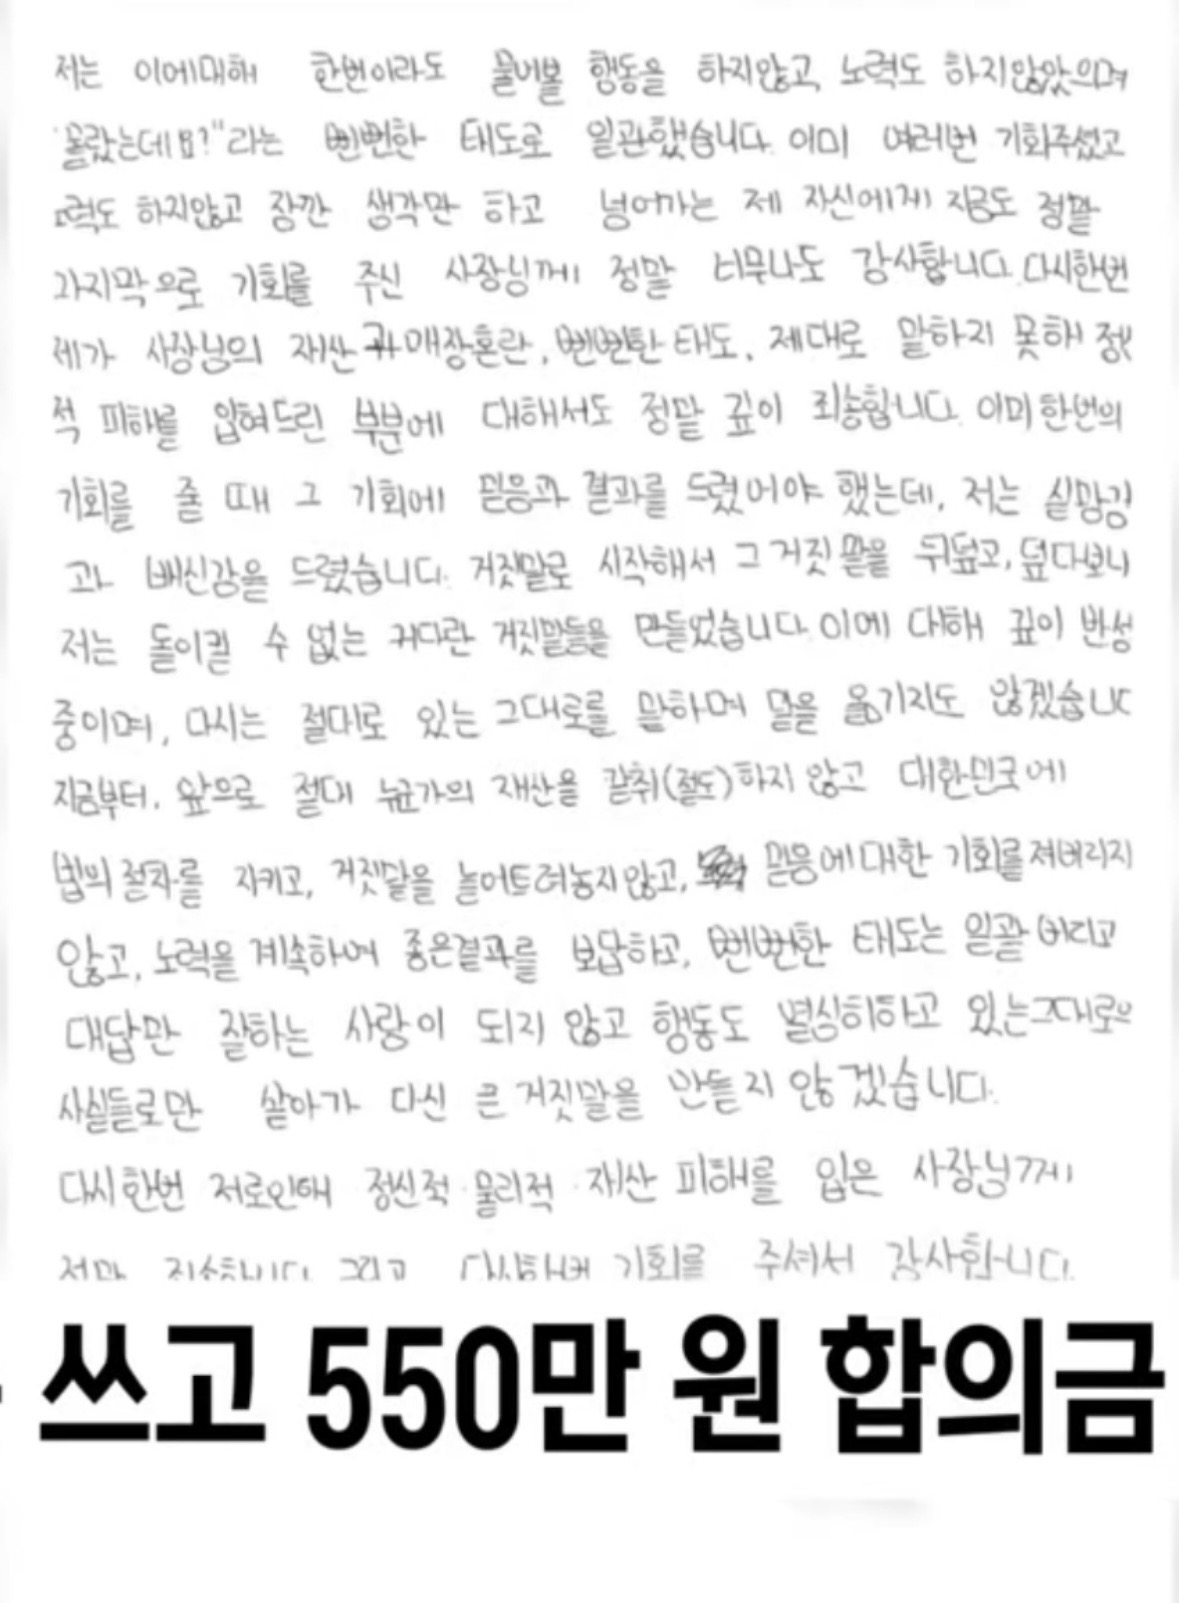 저는 이에대해 한번이라도 물어볼 행동을 하지않고 노력도 하지않았으며
"몰랐는데요?"라는 뻔뻔한 태도로 일관했습니다. 이미 여러번 기회주셨고
노력도 하지않고 잠깐 생각만 하고 넘어가는 제 자신에게 지금도 정말
마지막으로 기회를 주신 사장님께 정말 너무나도 감사합니다. 다시한번
제가 사장님의 재산과 매장혼란, 뻔뻔한 태도, 제대로 말하지 못해 정신
적 피해를 입혀드린 부분에 대해서도 정말 깊이 죄송합니다. 이미 한번의
기회를 줄 때 그 기회에 믿음과 결과를 드렸어야 했는데, 저는 실망감
과 배신감을 드렸습니다. 거짓말로 시작해서 그 거짓말을 뒤덮고, 덮다보니
저는 돌이킬 수 없는 커다란 거짓말들을 만들었습니다. 이에 대해 깊이 반성
중이며, 다시는 절대로 있는 그대로를 말하며 말을 옮기지도 않겠습니다
지금부터, 앞으로 절대 누군가의 재산을 갈취(절도)하지 않고 대한민국에
법의 절차를 지키고, 거짓말을 늘어트려놓지않고, 믿음에 대한 기회를 져버리지
않고, 노력을 계속하여 좋은결과를 보답하고, 뻔뻔한 태도는 일괄 버리고
대답만 잘하는 사람이 되지 않고 행동도 열심히하고 있는그대로의
사실들로만 살아가 다신 큰 거짓말을 만들지 않겠습니다.
다시한번 저로인해 정신적·물리적·재산 피해를 입은 사장님께
정말 죄송합니다 그리고 다시한번 기회를 주셔서 감사합니다.
쓰고 550만 원 합의금